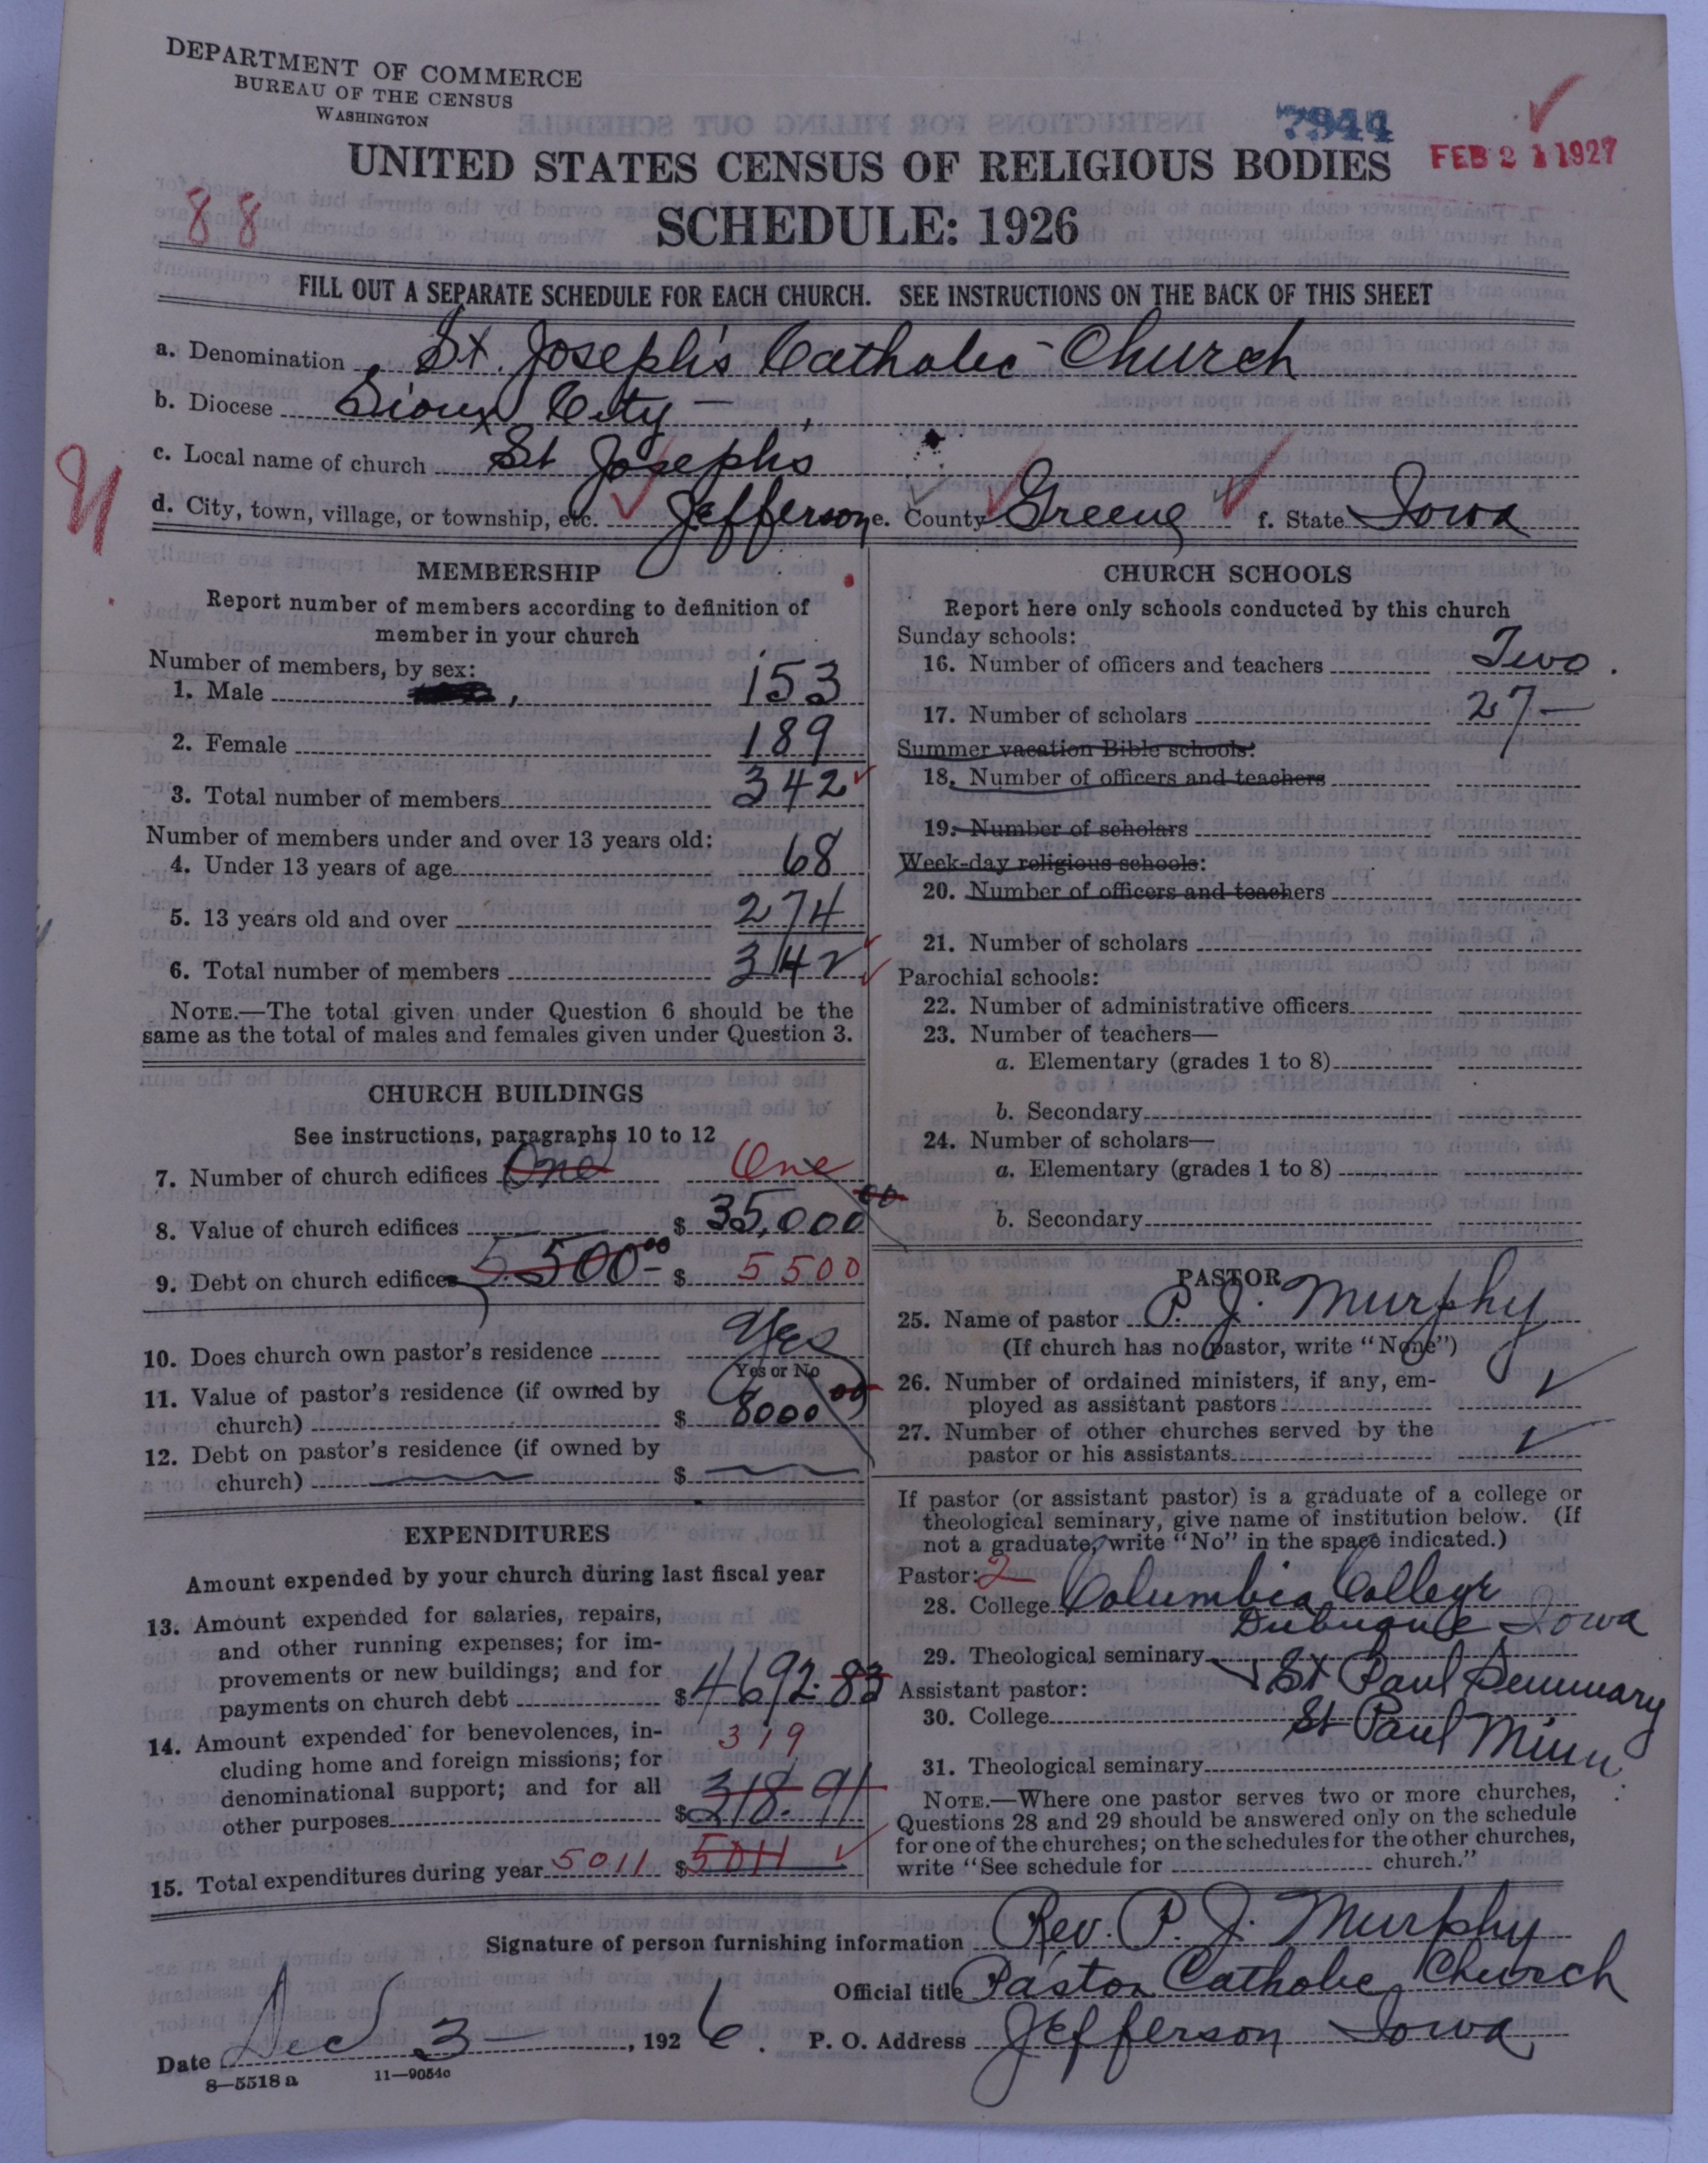 DEPARTMENT OF COMMERCE
BUREAU OF THE CENSUS
WASHINGTON
7944
FEB 21 1927
UNITED STATES CENSUS OF RELIGIOUS BODIES
88
SCHEDULE: 1926
FILL OUT A SEPARATE SCHEDULE FOR EACH CHURCH. SEE INSTRUCTIONS ON THE BACK OF THIS SHEET
a. Denomination St. Joseph's Catholic Church
b. Diocese Sioux City
c. Local name of church St Josephs
d. City, town, village, or township, etc. Jefferson e. County Greene f. State Iowa
MEMBERSHIP
Report number of members according to definition of
member in your church
Number of members, by sex:
1. Male 153
2. Female 189
3. Total number of members 342
Number of members under and over 13 years old:
4. Under 13 years of age 68
5. 13 years old and over 274
6. Total number of members 342
NOTE.—The total given under Question 6 should be the
same as the total of males and females given under Question 3.
CHURCH BUILDINGS
See instructions, paragraphs 10 to 12
7. Number of church edifices One One
8. Value of church edifices $ 35,000 00
9. Debt on church edifices 5500.00 $ 5500
10. Does church own pastor's residence Yes
Yes or No
11. Value of pastor's residence (if owned by
church) $ 8000 00
12. Debt on pastor's residence (if owned by
church) $
EXPENDITURES
Amount expended by your church during last fiscal year
13. Amount expended for salaries, repairs,
and other running expenses; for im-
provements or new buildings; and for
payments on church debt $ 4692.83
14. Amount expended for benevolences, in-
cluding home and foreign missions; for
denominational support; and for all
other purposes $ 318.91
319
15. Total expenditures during year 5011 $ 5011
CHURCH SCHOOLS
Report here only schools conducted by this church
Sunday schools:
16. Number of officers and teachers Two
17. Number of scholars 27
Summer vacation Bible schools:
18. Number of officers and teachers
19. Number of scholars
Week-day religious schools:
20. Number of officers and teachers
21. Number of scholars
Parochial schools:
22. Number of administrative officers
23. Number of teachers—
a. Elementary (grades 1 to 8)
b. Secondary
24. Number of scholars—
a. Elementary (grades 1 to 8)
b. Secondary
PASTOR
25. Name of pastor P. J. Murphy
(If church has no pastor, write "None")
26. Number of ordained ministers, if any, em-
ployed as assistant pastors
27. Number of other churches served by the
pastor or his assistants
If pastor (or assistant pastor) is a graduate of a college or
theological seminary, give name of institution below. (If
not a graduate, write "No" in the space indicated.)
Pastor: 2
28. College Columbia College
Dubuque Iowa
29. Theological seminary St Paul Seminary
Assistant pastor:
30. College St Paul Minn
31. Theological seminary
NOTE.—Where one pastor serves two or more churches,
Questions 28 and 29 should be answered only on the schedule
for one of the churches; on the schedules for the other churches,
write "See schedule for church."
Signature of person furnishing information Rev. P. J. Murphy
Official title Pastor Catholic Church
Date Dec 3, 1926. P. O. Address Jefferson Iowa
8—5518 a 11—9054c